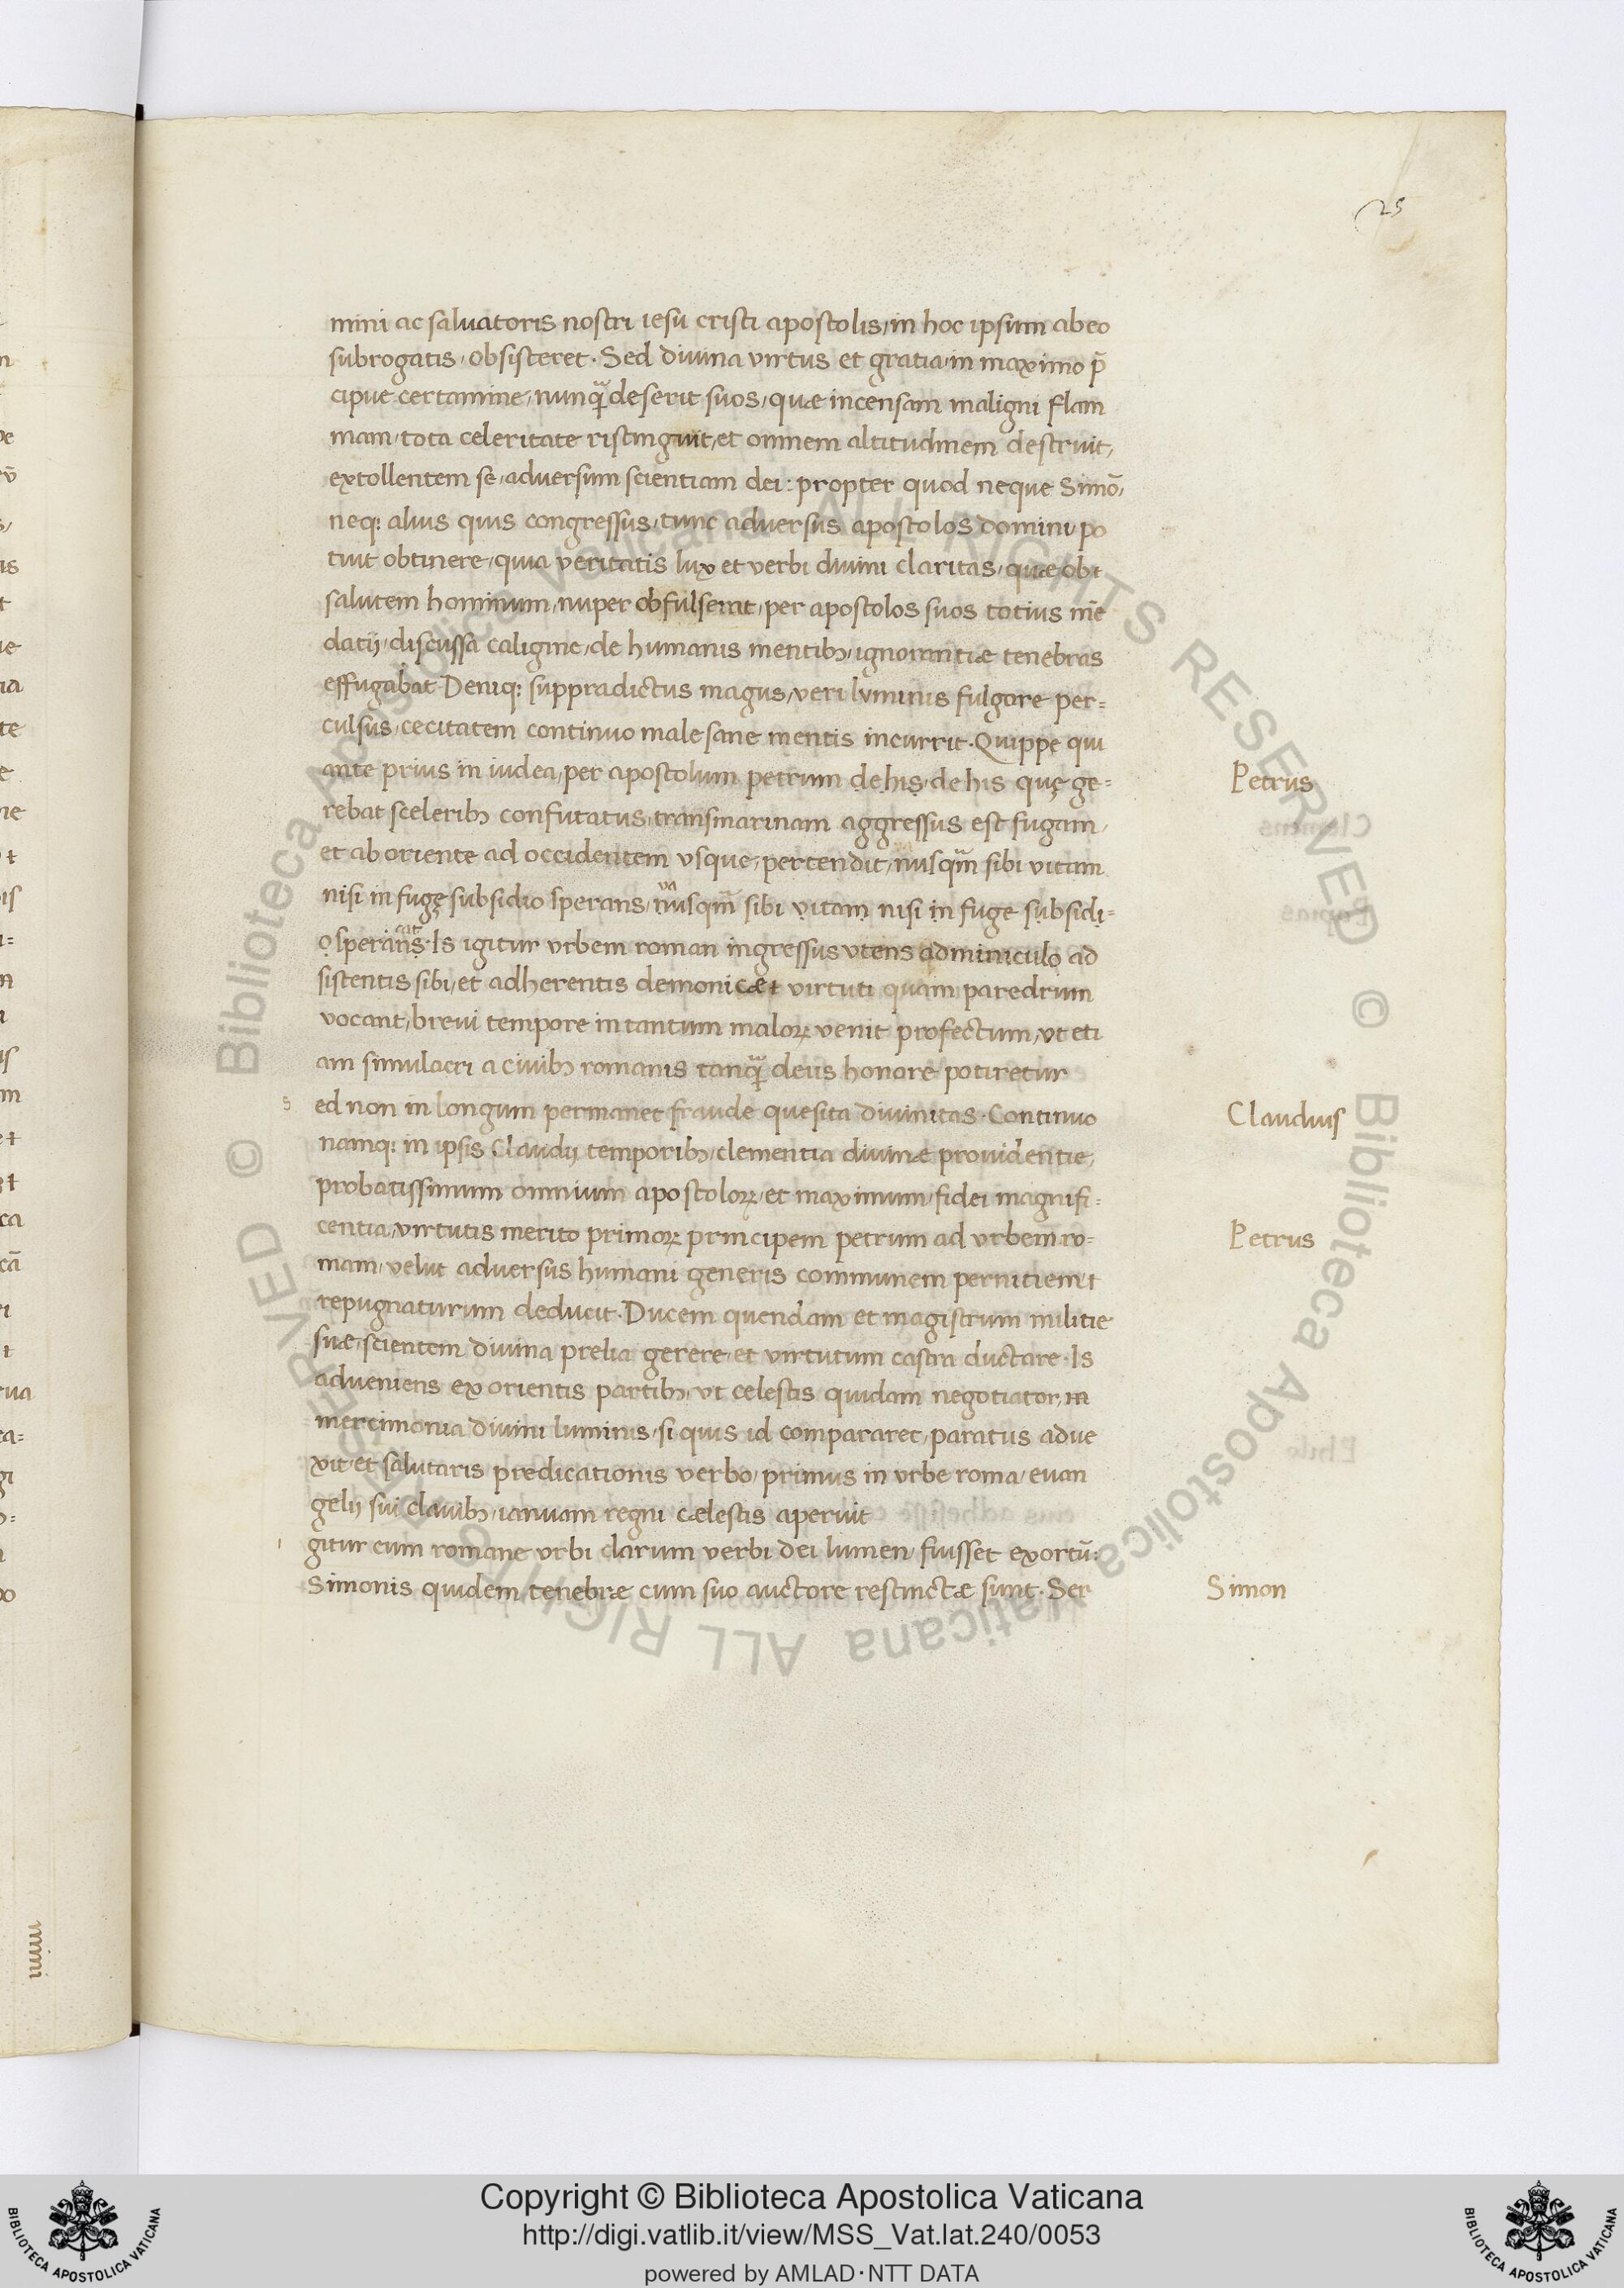 25
mini ac saluatoris nostri iesu cristi apostolis, in hoc ipsum ab eo
subrogatis, obsisteret. Sed diuina virtus et gratia, in maximo p̄
cipue certamine, nunq̃ deserit suos, quæ incensam maligni flam
mam, tota celeritate ristinguit, et omnem altitudinem destruit,
extollentem se, adversum scientiam dei: propter quod neque Simō,
neq: alius quis congressus, tunc adversus apostolos domini, po
tuit obtinere, quia veritatis lux et verbi diuini claritas, quæ ob
salutem hominum, nuper obfulserat, per apostolos suos totius mē
datij, discussa caligine, de humanis mentibȝ, ignorantiæ tenebras
effugabat. Deniq: suppradictus magus, veri lvminis fulgore per=
culsus, cecitatem continuo male sane mentis incurrit. Quippe qui
ante prius in iudea, per apostolum petrum de his, de his quę ge=
Petrus
rebat sceleribȝ confutatus, transmarinam aggressus est fugam,
et ab oriente ad occidentem vsque, pertendit, nusqm̃ sibi vitam
nisi in fugę subsidio sperans, nusqm̃ sibi vitam nisi in fuge subsidi=
o sperans. Is igitur vrbem roman ingressus vtens adminiculo ad
sistentis sibi, et adherentis demonicæ virtuti quam paredrum
vocant, breui tempore in tantum maloꝝ venit profectum, vt eti
am simulacri a ciuibȝ romanis tanq̃ deus honore potiretur
s ed non in longum permanet fraude quesita diuinitas. Continuo
Claudius
namq: in ipsis Claudij temporibȝ, clementia diuinæ prouidentie,
probatissimum omnium apostoloꝝ, et maximum, fidei magnifi=
centia, virtutis merito primoꝝ principem petrum ad vrbem ro=
Petrus
mam, velut adversus humani generis communem pernitiem
repugnaturum deducit. Ducem quendam et magistrum militie
suæ, scientem diuina prelia gerere, et virtutum castra ductare. Is
adueniens ex orientis partibȝ, vt celestis quidam negotiator,
mercimonia diuini luminis, si quis id compararet, paratus adue
xit, et salutaris predicationis verbo, primus in vrbe roma, euan
gelij sui clauibȝ, ianuam regni cælestis aperuit
i gitur cum romane vrbi clarum verbi dei lumen fuisset exortū:
Simonis quidem tenebræ cum suo auctore restinctæ sunt. Ser
Simon
© Biblioteca Apostolica Vaticana ALL RIGHTS RESERVED © Biblioteca Apostolica Vaticana ALL RIGHTS RESERVED
Copyright © Biblioteca Apostolica Vaticana
http://digi.vatlib.it/view/MSS_Vat.lat.240/0053
powered by AMLAD·NTT DATA
BIBLIOTECA APOSTOLICA VATICANA
BIBLIOTECA APOSTOLICA VATICANA